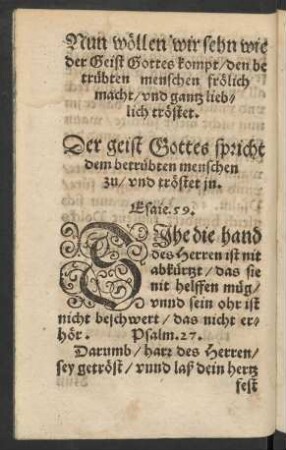 Nun wöllen wir sehn wie
der Geist Gottes kompt/den be
trübten menschen frölich
macht/vnd gantz lieb⸗
lich tröstet.
Der geist Gottes spricht
dem betrübten menschen
zu/ vnd tröstet jn.
Esaie.59.
SIhe die hand
des Herren ist nit
abkürtzt/das sie
nit helffen müg/
vnnd sein ohr ist
nicht beschwert/das nicht er⸗
hör. Psalm.27.
Darumb/harz des Herren/
sey getröst/vnnd laß dein hertz
fest